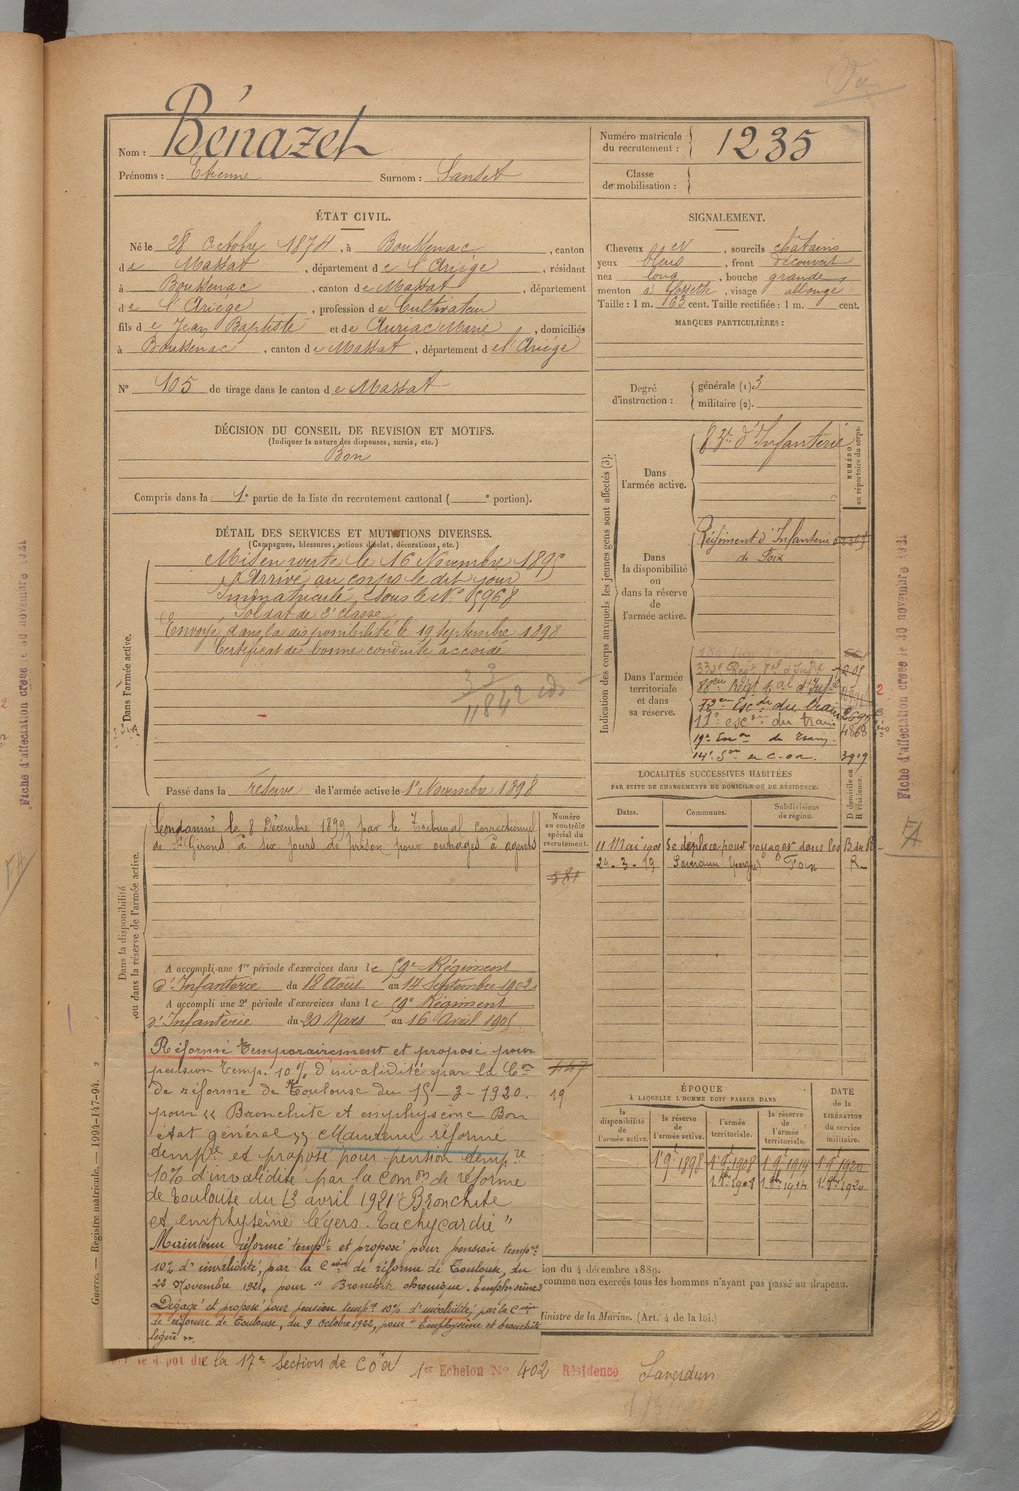 Nom : Bénazet
Prénoms : Etienne Surnom : Sansét
Numéro matricule du recrutement : 1235
Classe de mobilisation :
ÉTAT CIVIL.
Né le 28 Octobre 1874, à Boussenac, canton
de Massat, département de l'Ariége, résidant
à Boussenac, canton de Massat, département
de l'Ariége, profession de Cultivateur
fils de Jean Baptiste et de Auriac Marie, domiciliés
à Boussenac, canton de Massat, département de l'Ariége
N° 105 de tirage dans le canton de Massat
SIGNALEMENT.
Cheveux et, sourcils châtains
yeux bleus, front découvert
nez long, bouche grande
menton à fossette, visage allongé
Taille : 1 m. 63 cent. Taille rectifiée : 1 m. cent.
MARQUES PARTICULIÈRES :
Degré d'instruction : générale (1) 3
militaire (2).
DÉCISION DU CONSEIL DE REVISION ET MOTIFS.
(Indiquer la nature des dispenses, sursis, etc.)
Bon
Compris dans la 1e partie de la liste du recrutement cantonal ( e portion).
DÉTAIL DES SERVICES ET MUTATIONS DIVERSES.
(Campagnes, blessures, actions d'éclat, décorations, etc.)
Dans l'armée active.
Mis en route le 16 Novembre 1895
Arrivé au corps le dit jour
Immatriculé sous le N° 5968
Soldat de 2e classe
Envoyé dans la disponibilité le 19 Septembre 1898
Certificat de bonne conduite accordé
Passé dans la réserve de l'armée active le 1er Novembre 1898
Indication des corps auxquels les jeunes gens sont affectés (3).
NUMÉRO au répertoire du corps.
Dans l'armée active.
83e d'Infanterie
Dans la disponibilité ou dans la réserve de l'armée active.
Régiment d'Infanterie
de Foix
Dans l'armée territoriale et dans sa réserve.
19e Esc on du Train
3919
LOCALITÉS SUCCESSIVES HABITÉES
PAR SUITE DE CHANGEMENTS DE DOMICILE OU DE RÉSIDENCE.
Dates. Communes. Subdivisions de région. D domicile ou R résidence.
11 Mai 1901 Se déplace pour voyager dans les B du R
24-3-19 Saverdun Foix R
Dans la disponibilité ou dans la réserve de l'armée active.
Numéro au contrôle spécial du recrutement.
581
Condamné le 8 Décembre 1899 par le Tribunal Correctionnel
de St Girons à six jours de prison pour outrages à agents
A accompli une 1re période d'exercices dans le 59e Régiment
d'Infanterie du 18 Août au 14 Septembre 1902
A accompli une 2e période d'exercices dans le 59e Régiment
d'Infanterie du 20 Mars au 16 Avril 1905
Réformé Temporairement et proposé pour
pension temp. 10% d'invalidité par la Con
de réforme de Toulouse du 15-3-1920.
pour « Bronchite et emphysème Bon
état général » Maintenu réformé
tempre et proposé pour pension tempre
10% d'invalidité par la Comon de réforme
de Toulouse du 13 avril 1921 "Bronchite
et emphysème légers. Tachycardie"
Maintenu réformé tempre et proposé pour pension tempre
10% d'invalidité, par la Cion de réforme de Toulouse, du
22 Novembre 1921, pour "Bronchite chronique. Emphysème"
Dégagé et proposé pour pension tempre 10% d'invalidité, par la Cion
de réforme de Toulouse, du 9 octobre 1922, pour "Emphysème et bronchite
légère".
447
19
ÉPOQUE
À LAQUELLE L'HOMME DOIT PASSER DANS
la disponibilité de l'armée active. la réserve de l'armée active. l'armée territoriale. la réserve de l'armée territoriale. DATE de la LIBÉRATION du service militaire.
1 9e 1898 1 9e 1908 1 9e 1914 1 9e 1920
ion du 4 décembre 1889.
comme non exercés tous les hommes n'ayant pas passé au drapeau.
Ministre de la Marine. (Art. 4 de la loi.)
la 17e Section de COA 1er Echelon N° 402 Résidence Saverdun
Guerre. — Registre matricule. — 1994-147-94.
Fiche d'affectation créée le 30 novembre 1921
FA
Fiche d'affectation créée le 30 novembre 1921
FA